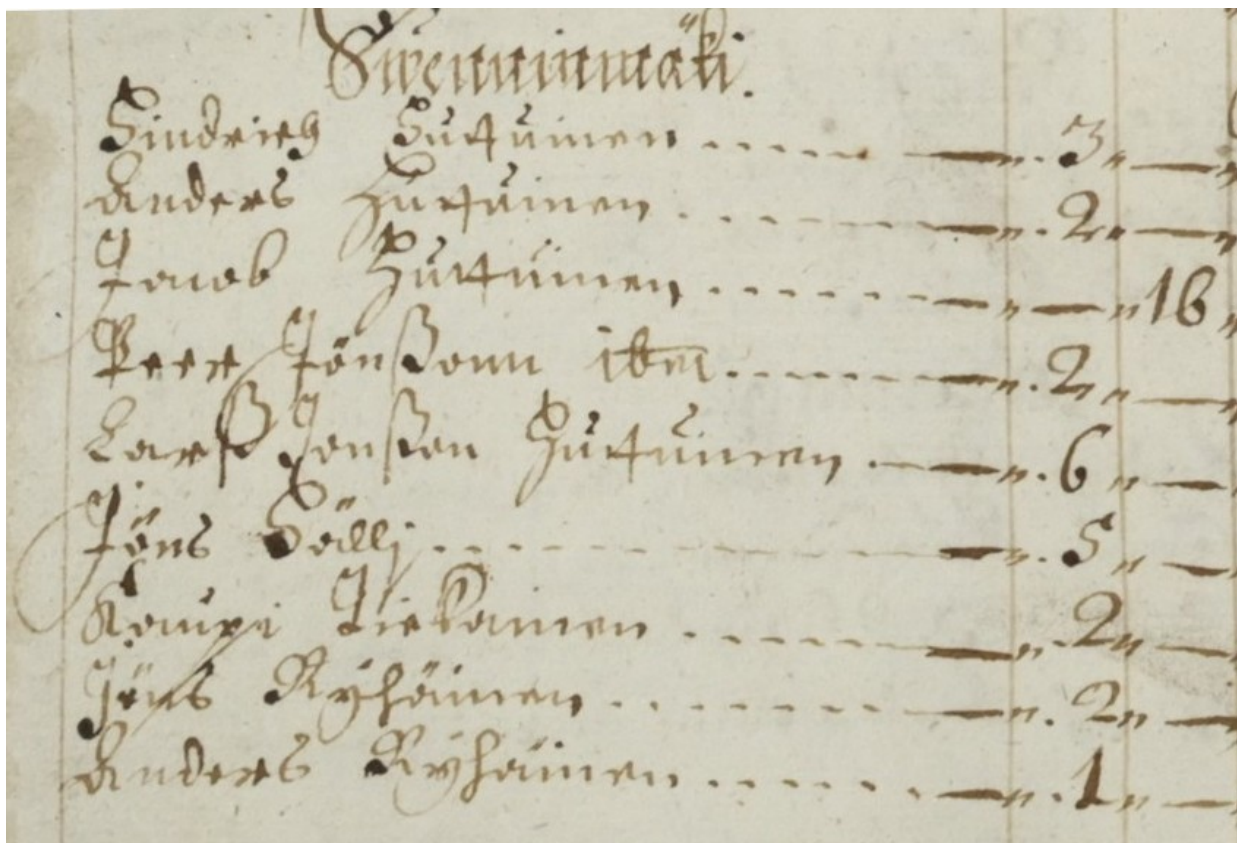 Swenninmäki.
Hindrich Hurtuinen ..... — „. 3 „ — „
Anders Hurtuinen ...... — „. 2 „ — „
Jacob Hurtuinen ...... — „ — „ 16 „
Peer Jönßonn ibm ...... — „. 2 „ — „
Larß Jonßon Hurtuinen .— — „. 6 „ —
Jöns Hälli ........ — „. 5 „ —
Kaupi Tiekainen ...... — „. 2 „ —
Jöns Ryhäinen ...... — „. 2 „ —
Anders Ryhäinen ..... — „. 1 „ —